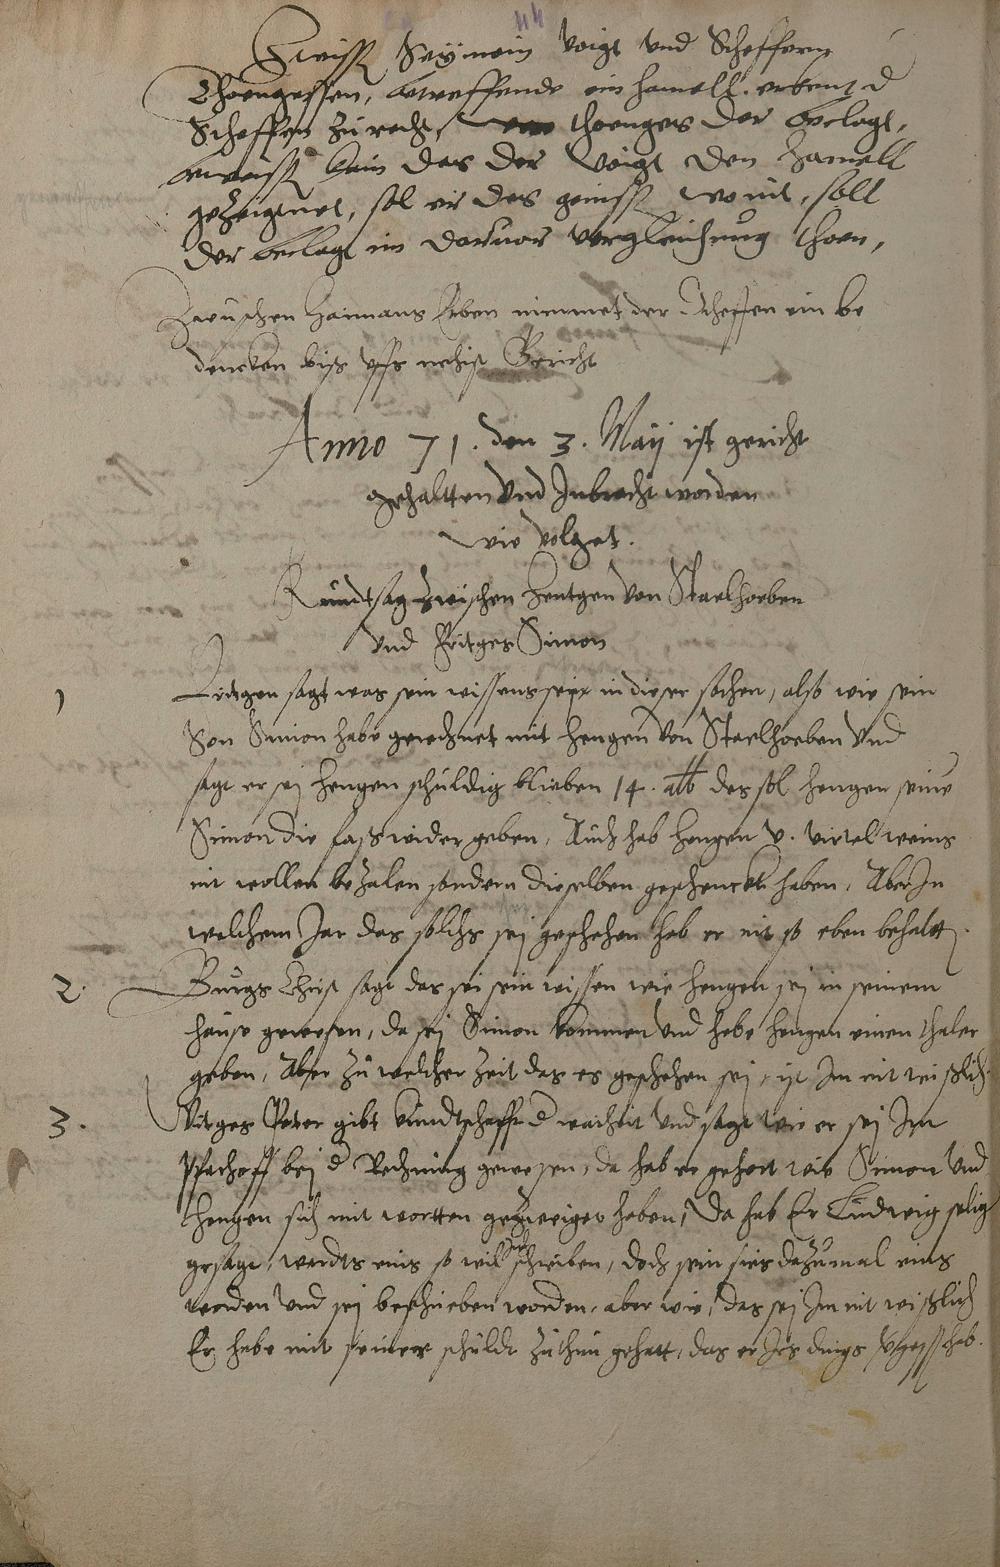 44
Zwischen Seÿmoin Voigt vnd Scheffern
Thoengessen, betreffende ein hamell. erkent d
Scheffen zu recht, thoenges der beclagt,
beweist kein das der Voigt den hamell
gezeignet, sol er des geniess womit, soll
der beclagt im daruor vergleichung thoen,
Zwuschen Haimans Erben nimmet der Scheffen ein be
dencken biss vffs nehist Gericht
Anno 71. den 3. Maij ist gericht
gehaltten vnd Inbracht worden
wie volget.
Kundtsag zwischen Hentgen von Staelhoeben
vnd Peitges Simon
1 sagt was sein wissens seye in dieser sachen, also wie sein
Son Simon habe gerechnet mit Hengen von Staelhoeben vnd
sagt er sej Hengen schuldig blieben 14. alb das sol Hengen seine
Simon die fass wider geben, Auch hab Hengen v. virtel weins
nit wollen bezalen sondern dieselben geschenckt haben, Aber In
welchem Jar das solchs sej geschehen hab er nit so eben behaltt.
2. Burgs Christ sagt das sei sein wissen wie Hengen sej in seinem
hause gewesen, da sej Simon kommen vnd habe Hengen einen thaler
geben, Aber zu welcher zeit das es geschehen sej, ist Im nit wisslich.
3. Peitges Peter gibt kundtschafft d warheit vnd sagt wie er sej Im
Pfarhoff bej d Rechnung gewesen, da hab er gehort wie Simon vnd
Hengen sich mit wortten gezweyget haben, Da hab Er Ludwig selig
gesagt, werdts eins so wil Ichs schreiben, doch sein sies dazumal eins
worden vnd sej beschrieben worden, aber wie, das sej Im nit wisslich
Er habe mit seiner schuldt zuthun gehatt, das er Irs dings vergess hab.